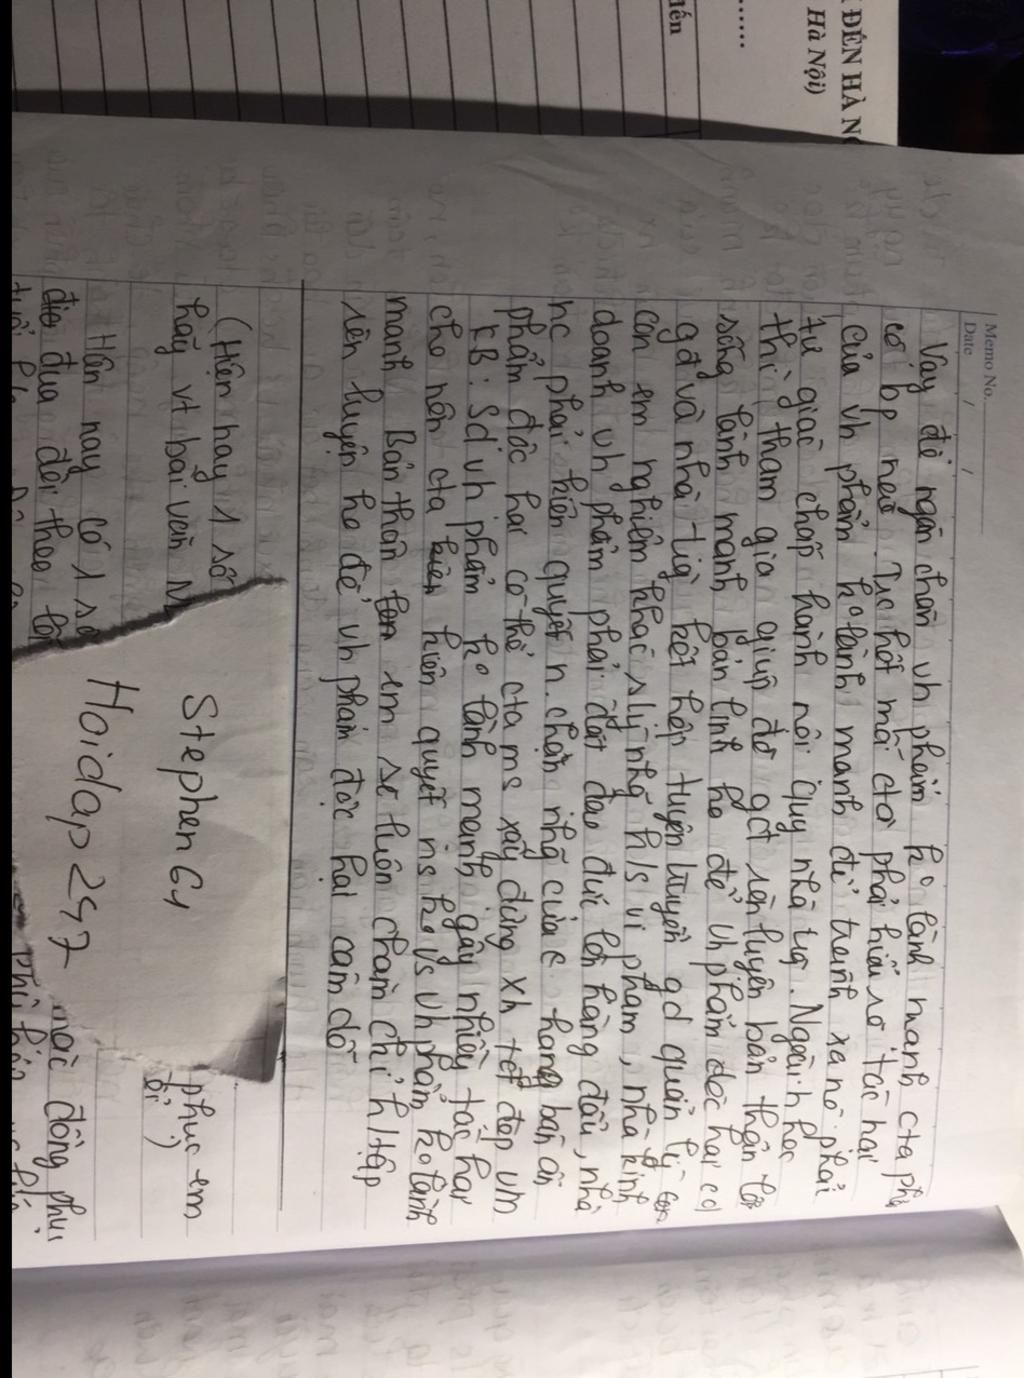 ĐẾN HÀ N
Hà Nội)
Memo No.
Date / /
Vậy để ngăn chặn vh phẩm ko lành mạnh cta phả
có bp nào. Trc hết mỗi cta phải hiểu rõ tác hại
của vh phẩm ko lành mạnh để tránh xa nó phải
tự giác chấp hành nội quy nhà trg. Ngoài h học
thì tham gia giúp đỡ gđ rèn luyện bản thân lối
sống lành mạnh bản lĩnh ko để vh phẩm độc hại
gđ và nhà trg kết hợp tuyên truyền gd quản lý
con em nghiêm khắc xlý nhg h/s vi phạm, nhà kinh
doanh vh phẩm phải đặt đạo đức lên hàng đầu, nhà
nc phải kiên quyết n.chặn nhg cửa hang bán ấn
phẩm độc hại có thể cta ms xây dựng xh tốt đẹp vm
KB: Sd vh phẩm ko lành mạnh gây nhiều tác hại
cho nên cta kiên quyết ns ko vs vh phẩm ko lành
mạnh Bản thân em sẽ luôn chăm chỉ h/tập
rèn luyện ko để vh phẩm độc hại cám dỗ
(Hiện nay 1 số
phục em
hãy vt bài văn N
Stephen G4
Hiện nay có 1 số
điệu đua đòi theo
Hoidap247
mặc đồng phục